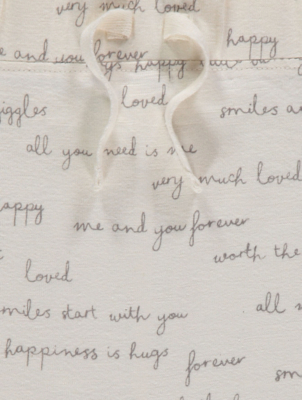 very much loved
happy
me and you forever
happy
loved
giggles
smiles
all you need is me
very much loved
happy
me and you forever
worth the
loved
smiles start with you
all
happiness is hugs
forever